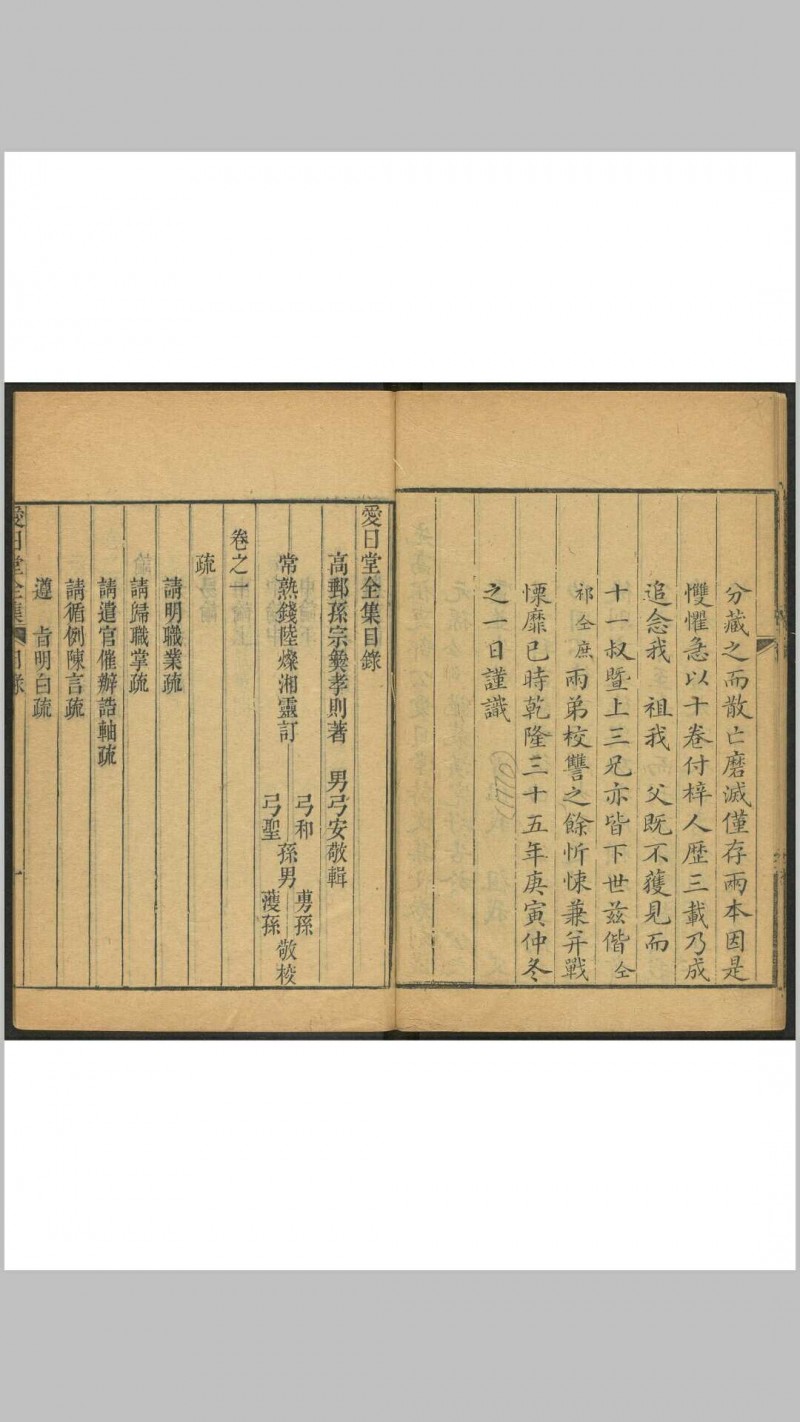 分藏之而散亡磨滅僅存兩本因是
懼急以十卷付梓人歷三載乃成
追念我 祖我 父既不獲見而
十一叔暨上三兄亦皆下世茲偕仝
祁仝庶兩弟校讐之餘忻悚兼并戰
慄靡已時乾隆三十五年庚寅仲冬
之一日謹識
愛日堂全集目錄
高郵孫宗彝孝則著 男弓安敬輯
常熟錢陸燦湘靈訂 弓和 弓聖 孫男 男孫 濩孫 敬校
卷之一
疏
請明職業疏
請歸職掌疏
請遣官催辦誥軸疏
請循例陳言疏
遵 旨明白疏
愛日堂全集 目錄 一